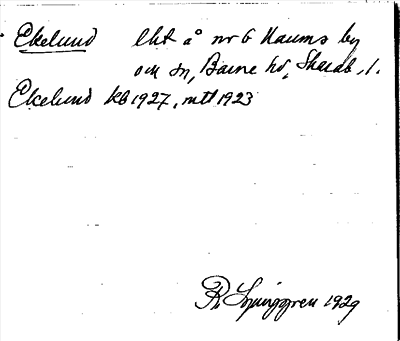 Ekelund lht å nr 6 Naums by
och sn, Barne hd, Skarab. l.
Ekelund kb 1927, mtl 1923
R. Ljunggren 1929